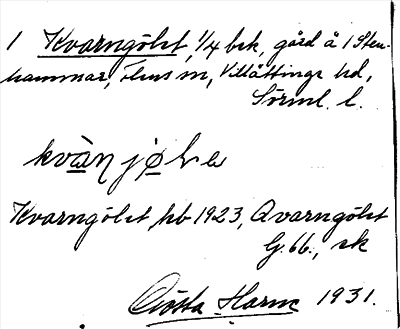 1 Kvarngölet, 1/4 brk, gård å 1 Sten-
hammar, Flens sn, Villåttinge hd,
Sörml. l.
kvàn jøle
Kvarngölet jb 1923, Qvarngölet
G. 66., ek
Gösta Harne 1931.